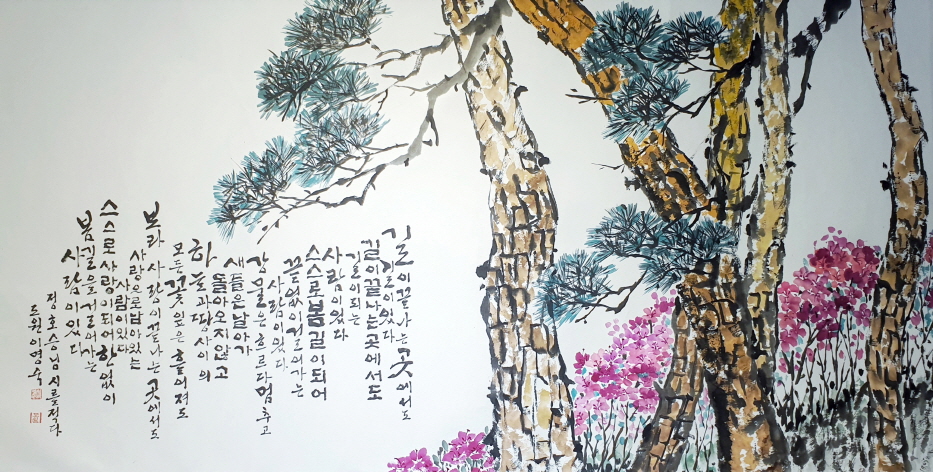 길이 끝나는 곳에서도
길이 있다
길이 끝나는 곳에서도
길이 되는
사람이 있다
스스로 봄길이 되어
끝없이 걸어가는
사람이 있다
강물은 흐르다 멈추고
새들은 날아가
돌아오지 않고
하늘과 땅 사이의
모든 꽃잎은 흩어져도
보라 사랑이 끝나는 곳에서도
사랑으로 남아있는
사람이 있다
스스로 사랑이 되어 한없이
봄길을 걸어가는
사람이 있다
정호승님 시를 적다
도원 이영숙